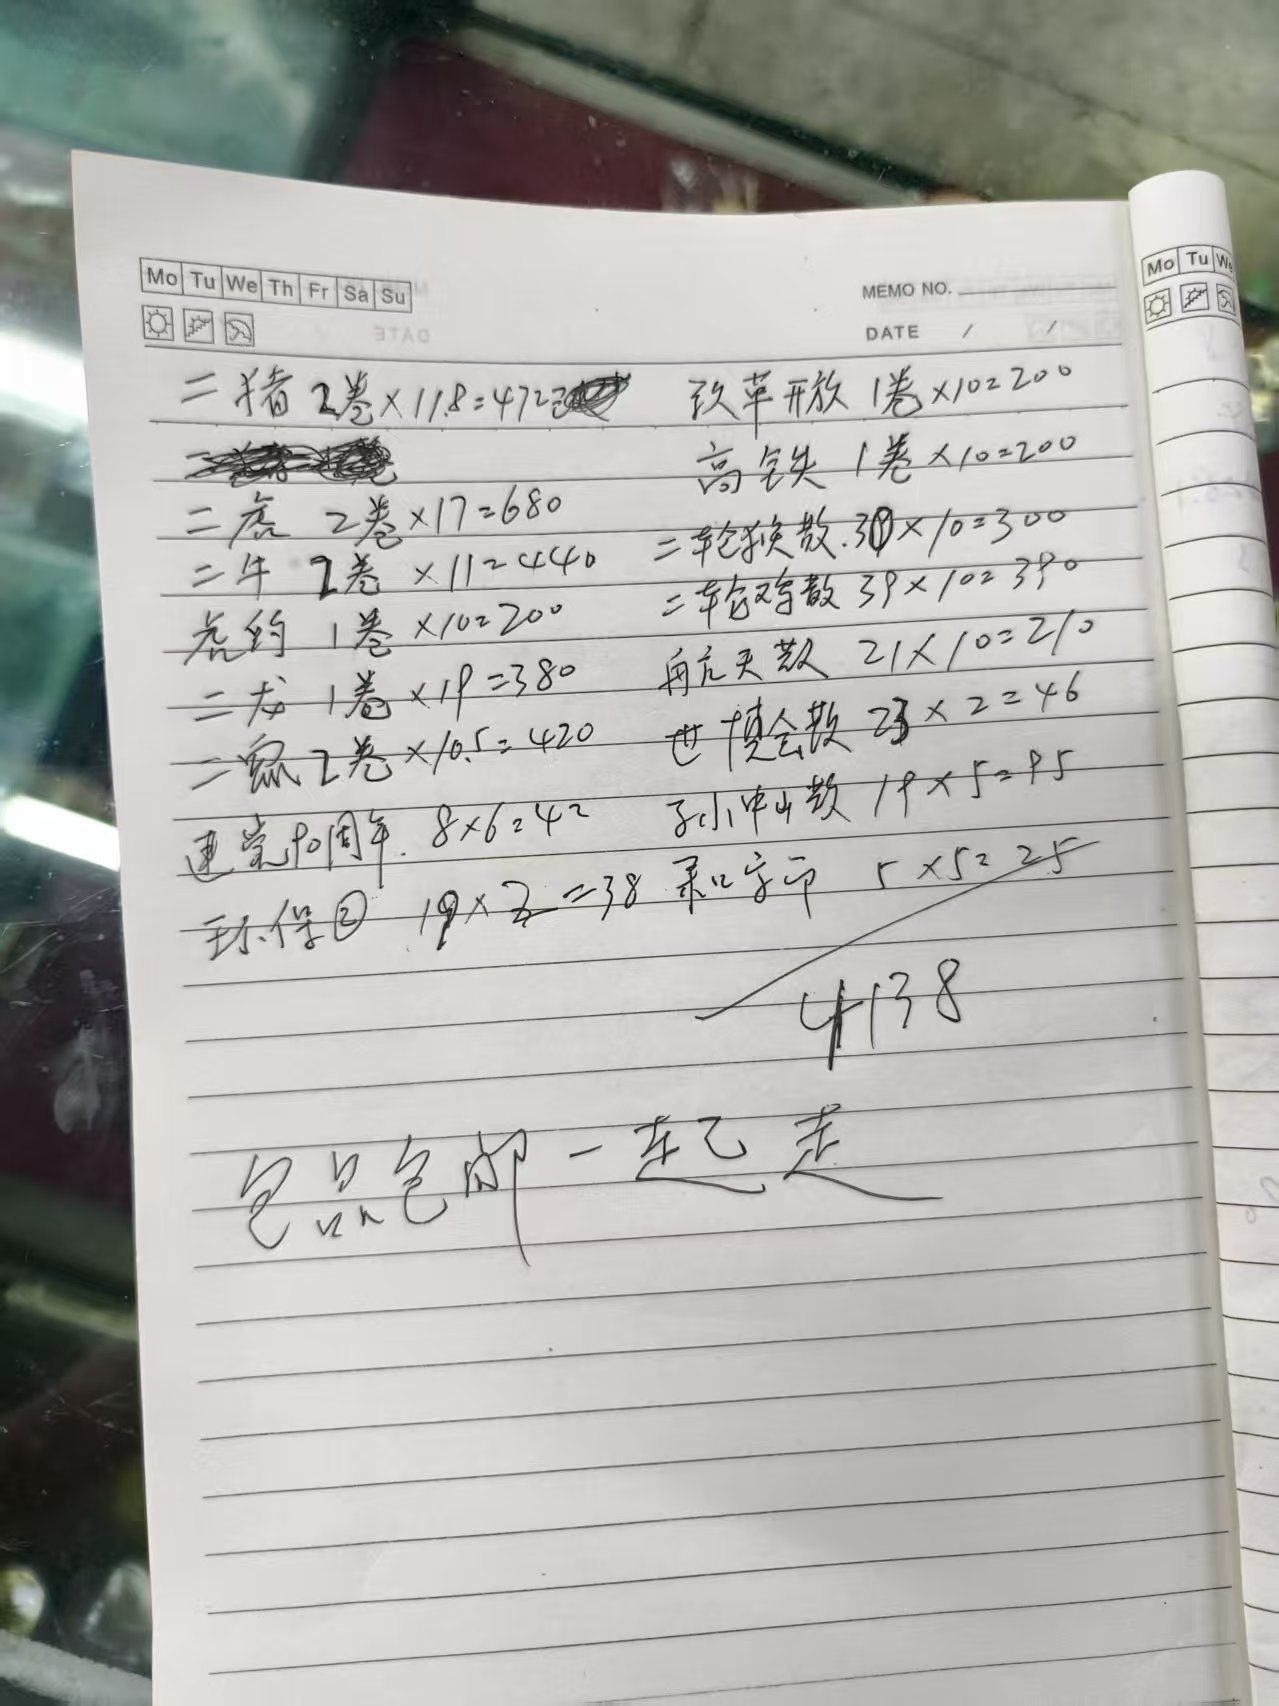 Mo Tu We Th Fr Sa Su
MEMO NO.
DATE / /
Mo Tu We
二猪 2卷×11.8=472
二虎 2卷×17=680
二牛 2卷 ×11=440
虎钞 1卷×10=200
二龙 1卷×19=380
二鼠 2卷×10.5=420
建党90周年. 8×6=42
环保② 19×2=38
改革开放 1卷×10=200
高铁 1卷×10=200
二轮猴散.30×10=300
二轮鸡散 39×10=390
航天散 21×10=210
世博会散 23×2=46
孙中山散 19×5=95
和字币 5×5=25
4138
包品包邮一起走